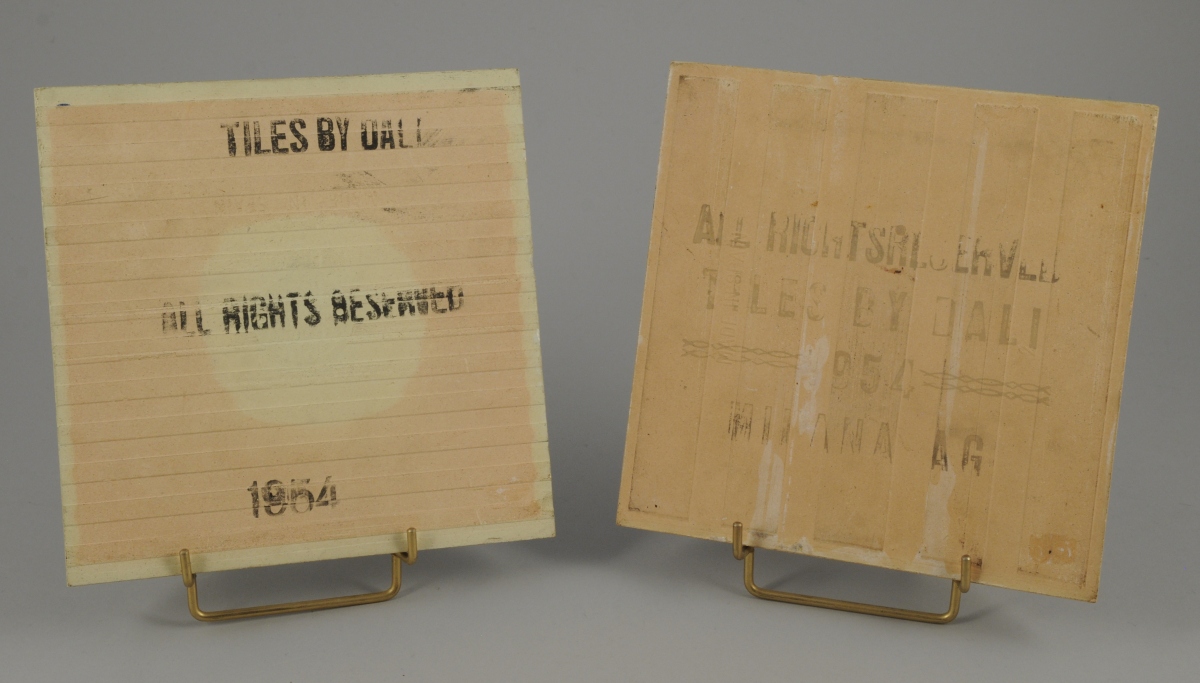 TILES BY DALI
ALL RIGHTS RESERVED
1954
ALL RIGHTS RESERVED
TILES BY DALI
954
AG